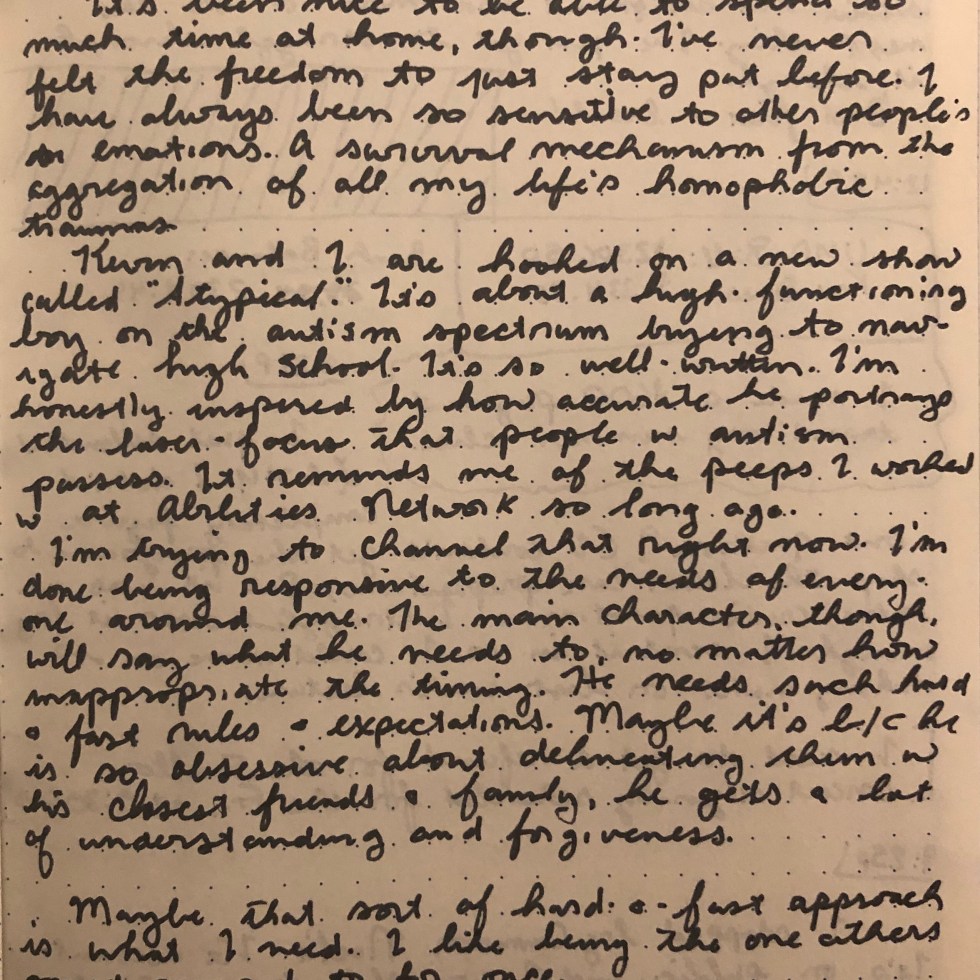 It's been nice to be able to spend so
much time at home, though. I've never
felt the freedom to just stay put before. I
have always been so sensitive to other people's
emotions. A survival mechanism from the
aggregation of all my life's homophobic
traumas
Kevin and I are hooked on a new show
called "Atypical." It's about a high-functioning
boy on the autism spectrum trying to nav-
igate high school. It's so well-written. I'm
honestly inspired by how accurate he portrays
the laser-focus that people w autism
possess. It reminds me of the peeps I worked
w at Abilities Network so long ago.
I'm trying to channel that right now. I'm
done being responsive to the needs of every-
one around me. The main character, though,
will say what he needs to, no matter how
inappropriate the timing. He needs such hard
& fast rules & expectations. Maybe it's b/c he
is so obsessive about delineating them w
his closest friends & family, he gets a lot
of understanding and forgiveness.
Maybe that sort of hard-&-fast approach
is what I need. I like being the one others
to for once